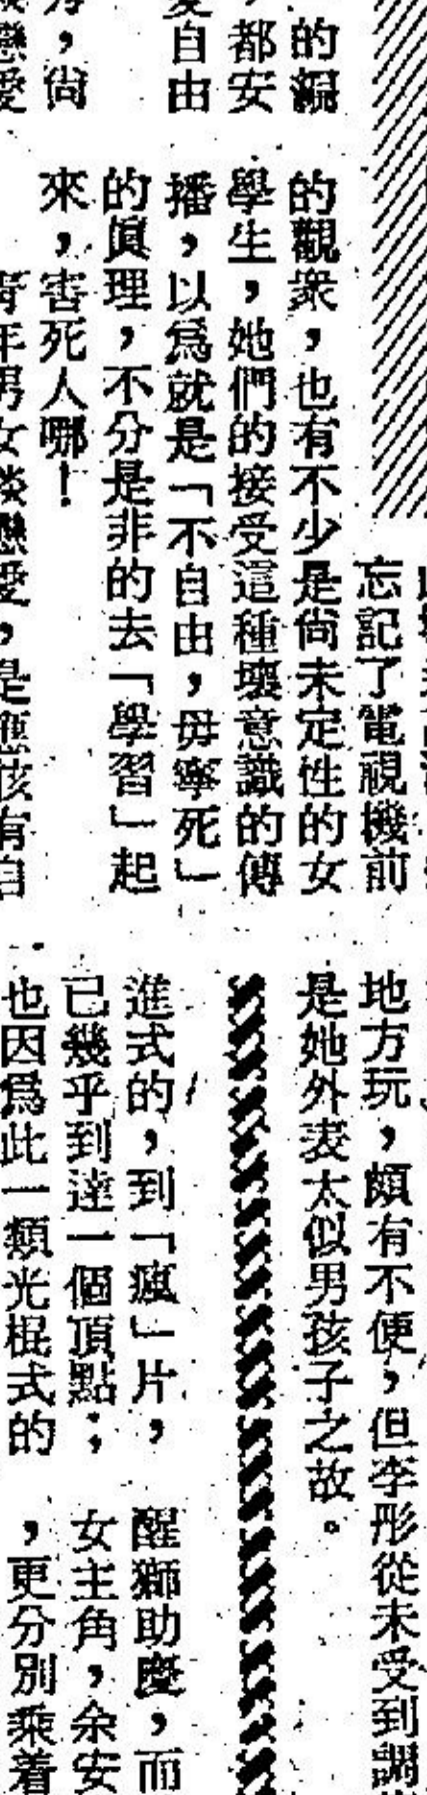 的編
都安
自由
尙
忘記了電視機前
的觀衆，也有不少是尙未定性的女
學生，她們的接受這種壞意識的傳
播，以爲就是「不自由，毋寧死」
的眞理，不分是非的去「學習」起
來，害死人哪！
靑年男女談戀愛，是應該有自
地方玩，頗有不便，但李彤從未受到調
是她外表太似男孩子之故。
進式的，到「瘋」片，
已幾乎到達一個頂點；
也因爲此一類光棍式的
醒獅助慶，而
女主角，余安
，更分別乘着